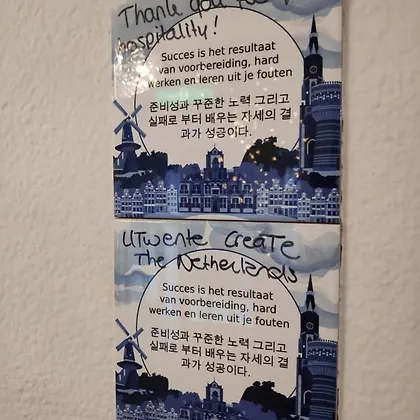 Thank you for
hospitality!
Succes is het resultaat
van voorbereiding, hard
werken en leren uit je fouten
준비성과 꾸준한 노력 그리고
실패로 부터 배우는 자세의 결
과가 성공이다.
UTwente Create
The Netherlands
Succes is het resultaat
van voorbereiding, hard
werken en leren uit je fouten
준비성과 꾸준한 노력 그리고
실패로 부터 배우는 자세의 결
과가 성공이다.